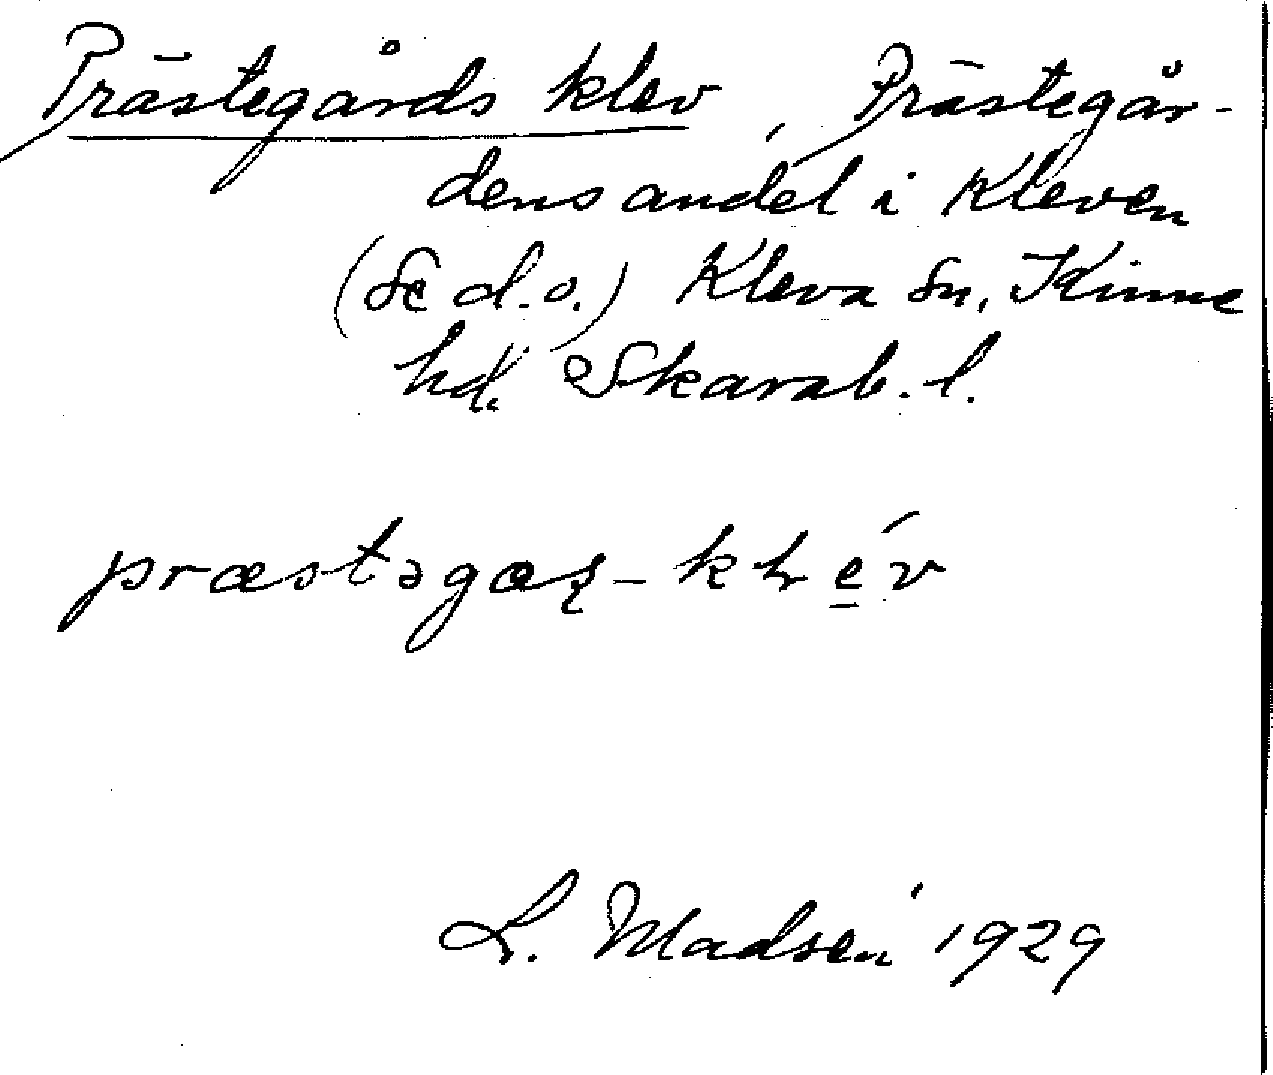 Prästegårds klev, Prästegår-
dens andel i Kleven
(Se d.o.) Kleva sn, Kinne
hd. Skarab. l.
L. Madsen 1929